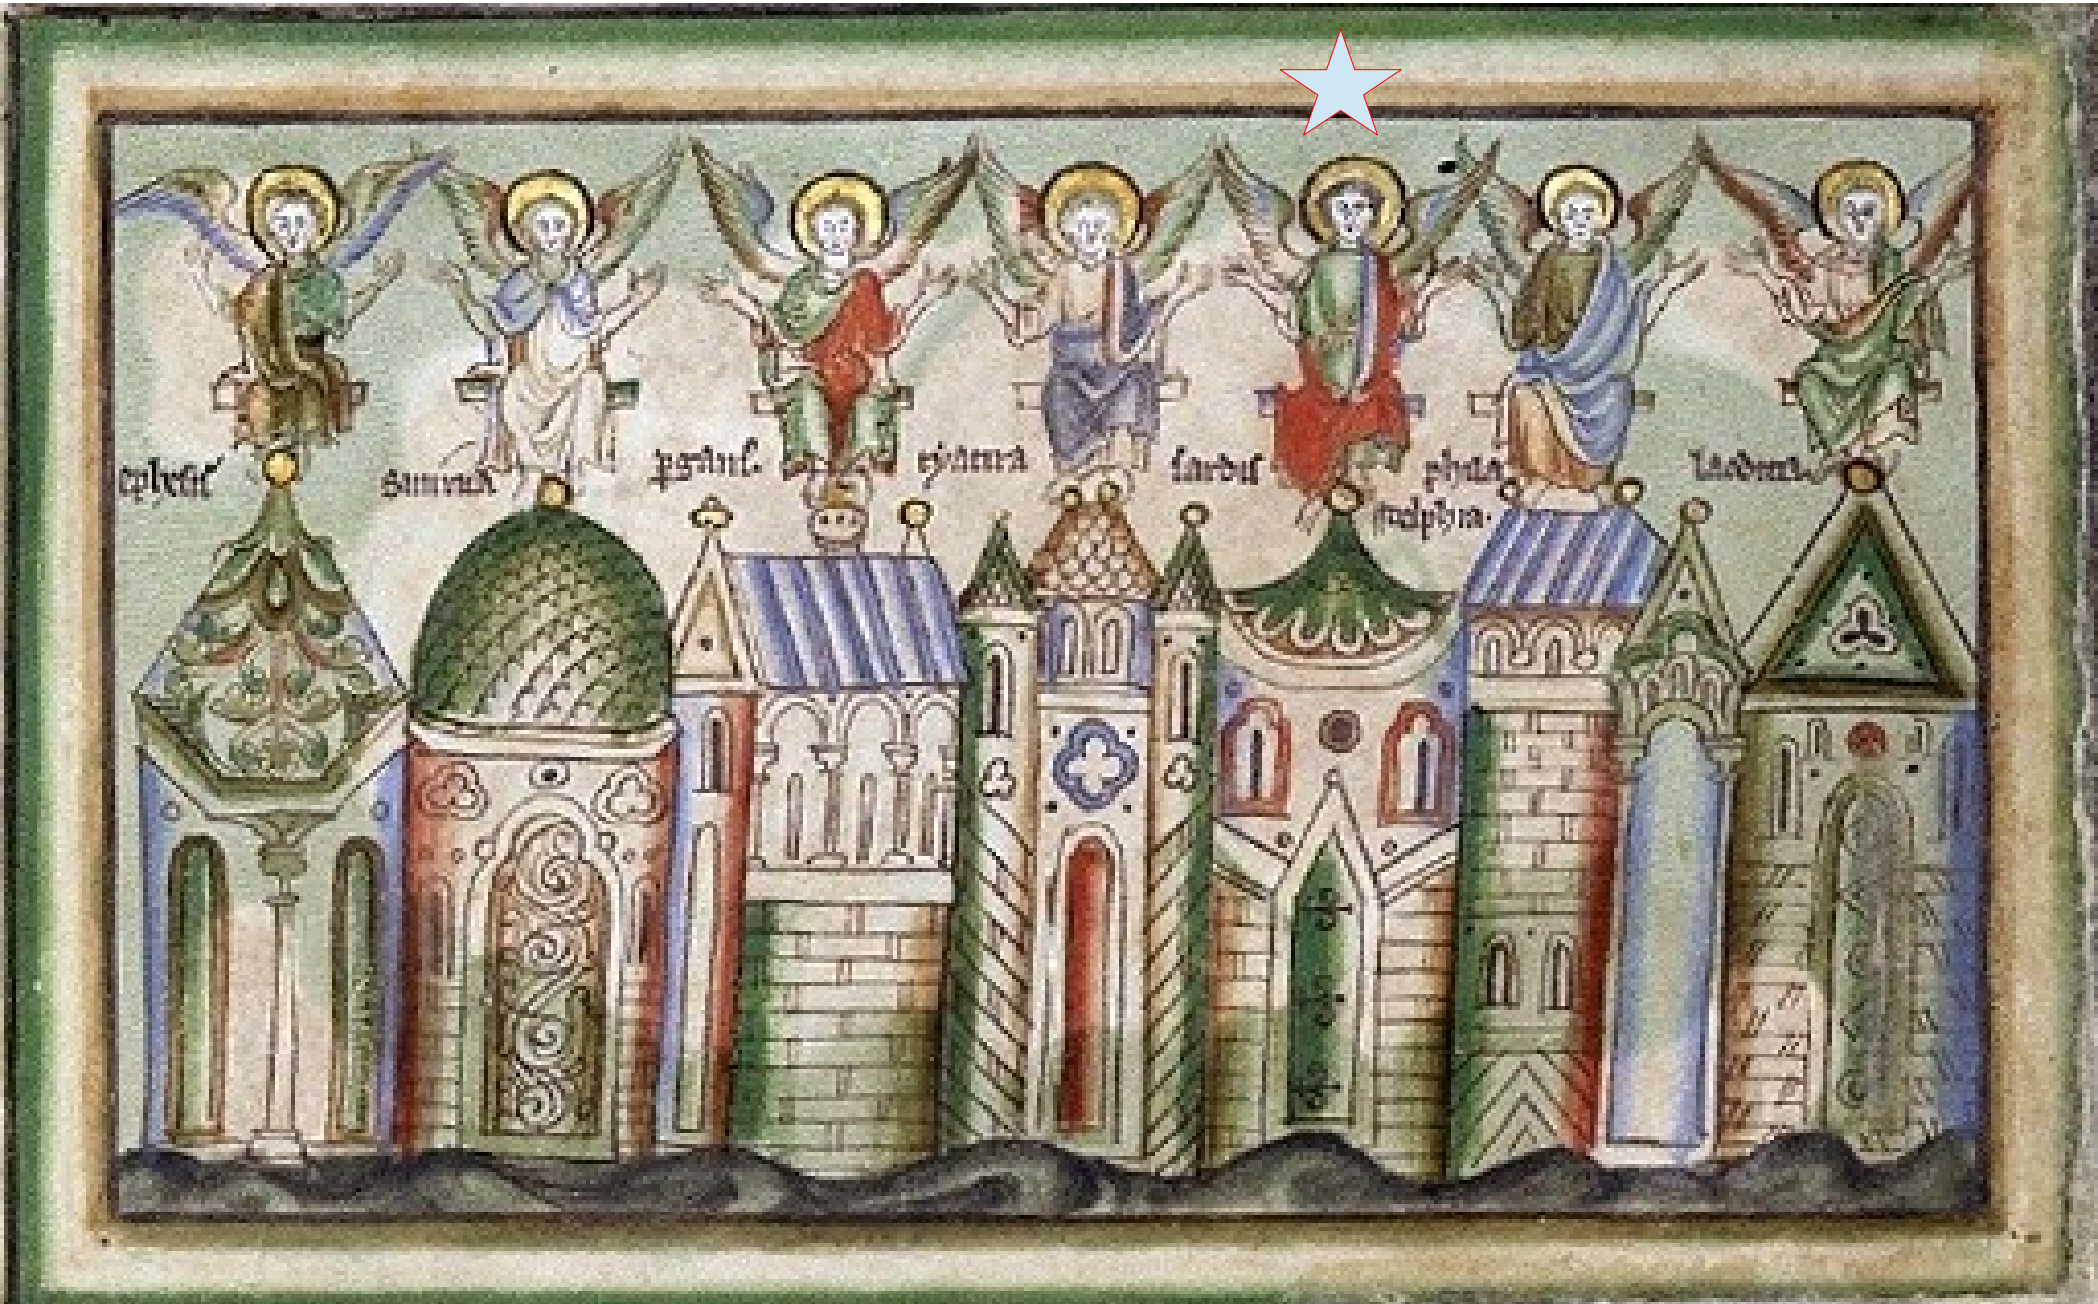 ephesus
smirna
pgam'
tyatira
sardis
phila
delphia.
laodicia